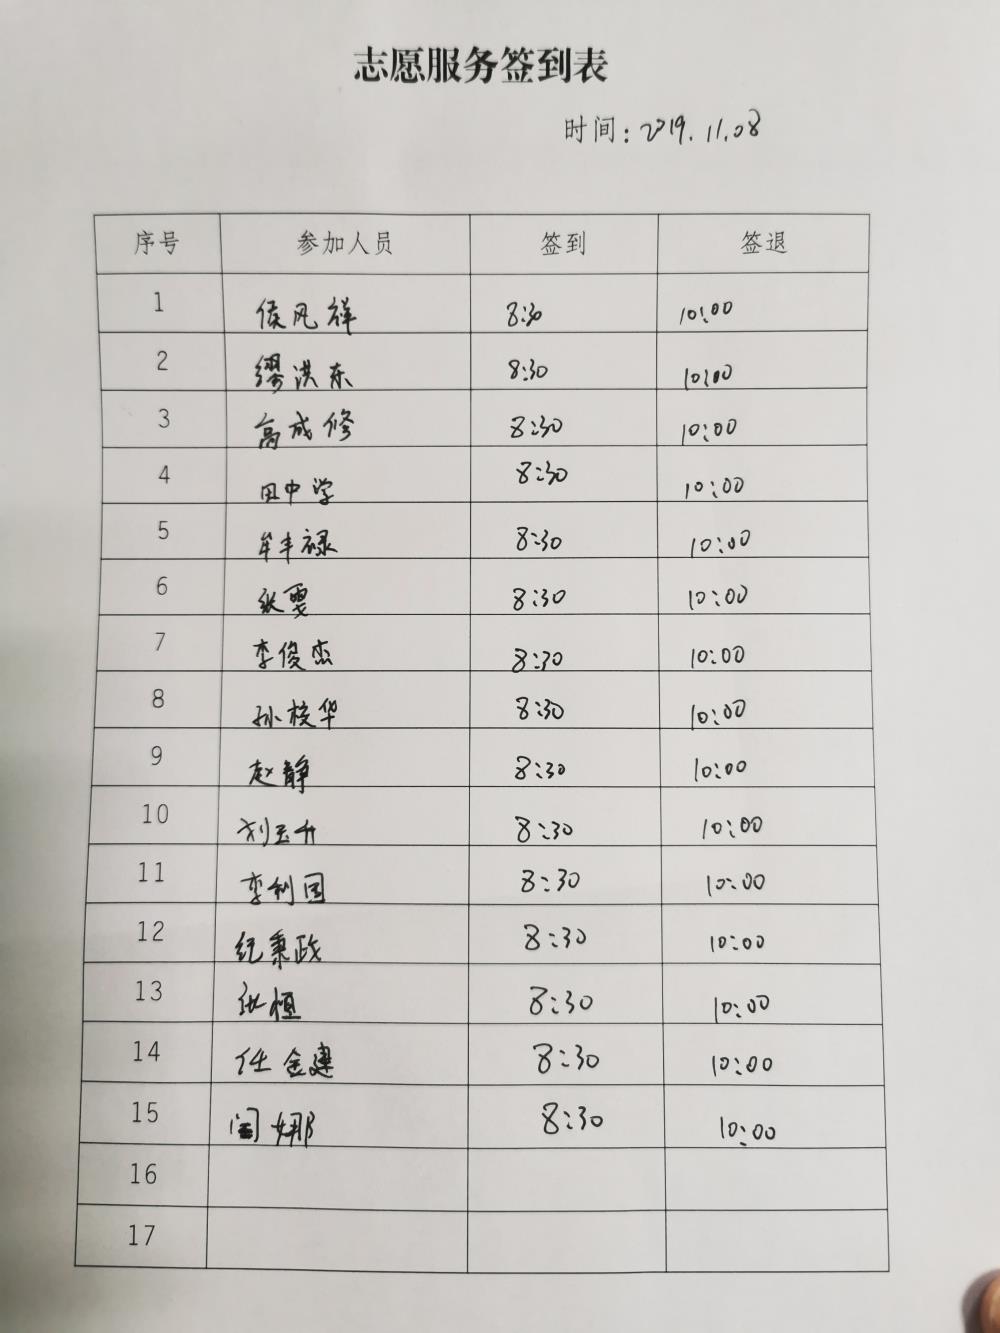 志愿服务签到表
时间：2019.11.08
序号 参加人员 签到 签退
1 侯风祥 8:30 10:00
2 缪洪东 8:30 10:00
3 高成修 8:30 10:00
4 田中学 8:30 10:00
5 牟丰禄 8:30 10:00
6 张雯 8:30 10:00
7 李俊杰 8:30 10:00
8 孙桂华 8:30 10:00
9 赵静 8:30 10:00
10 刘玉升 8:30 10:00
11 李利国 8:30 10:00
12 纪秉政 8:30 10:00
13 张恒 8:30 10:00
14 任金建 8:30 10:00
15 闫娜 8:30 10:00
16
17